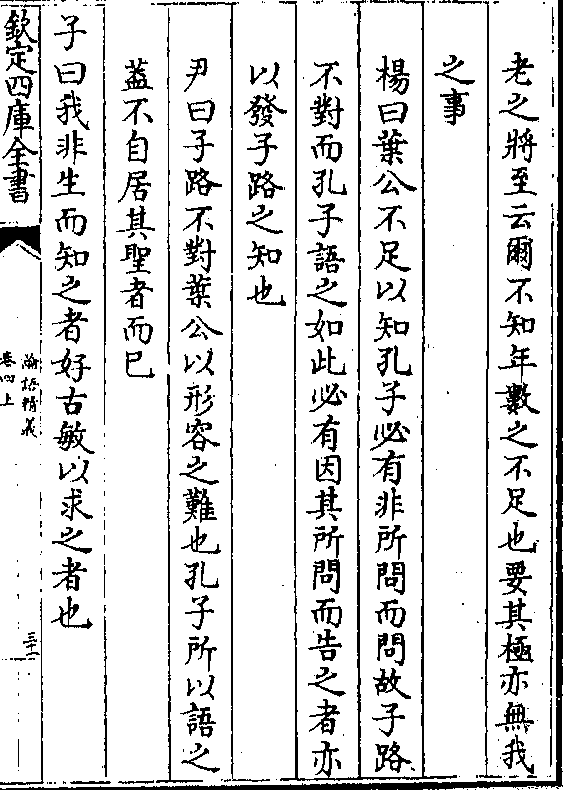 老之將至云爾不知年數之不足也要其極亦無我
之事
楊曰葉公不足以知孔子必有非所問而問故子路
不對而孔子語之如此必有因其所問而告之者亦
以發子路之知也
尹曰子路不對葉公以形容之難也孔子所以語之
葢不自居其聖者而已
子曰我非生而知之者好古敏以求之者也
欽定四庫全書
論語精義
卷四上
三十一